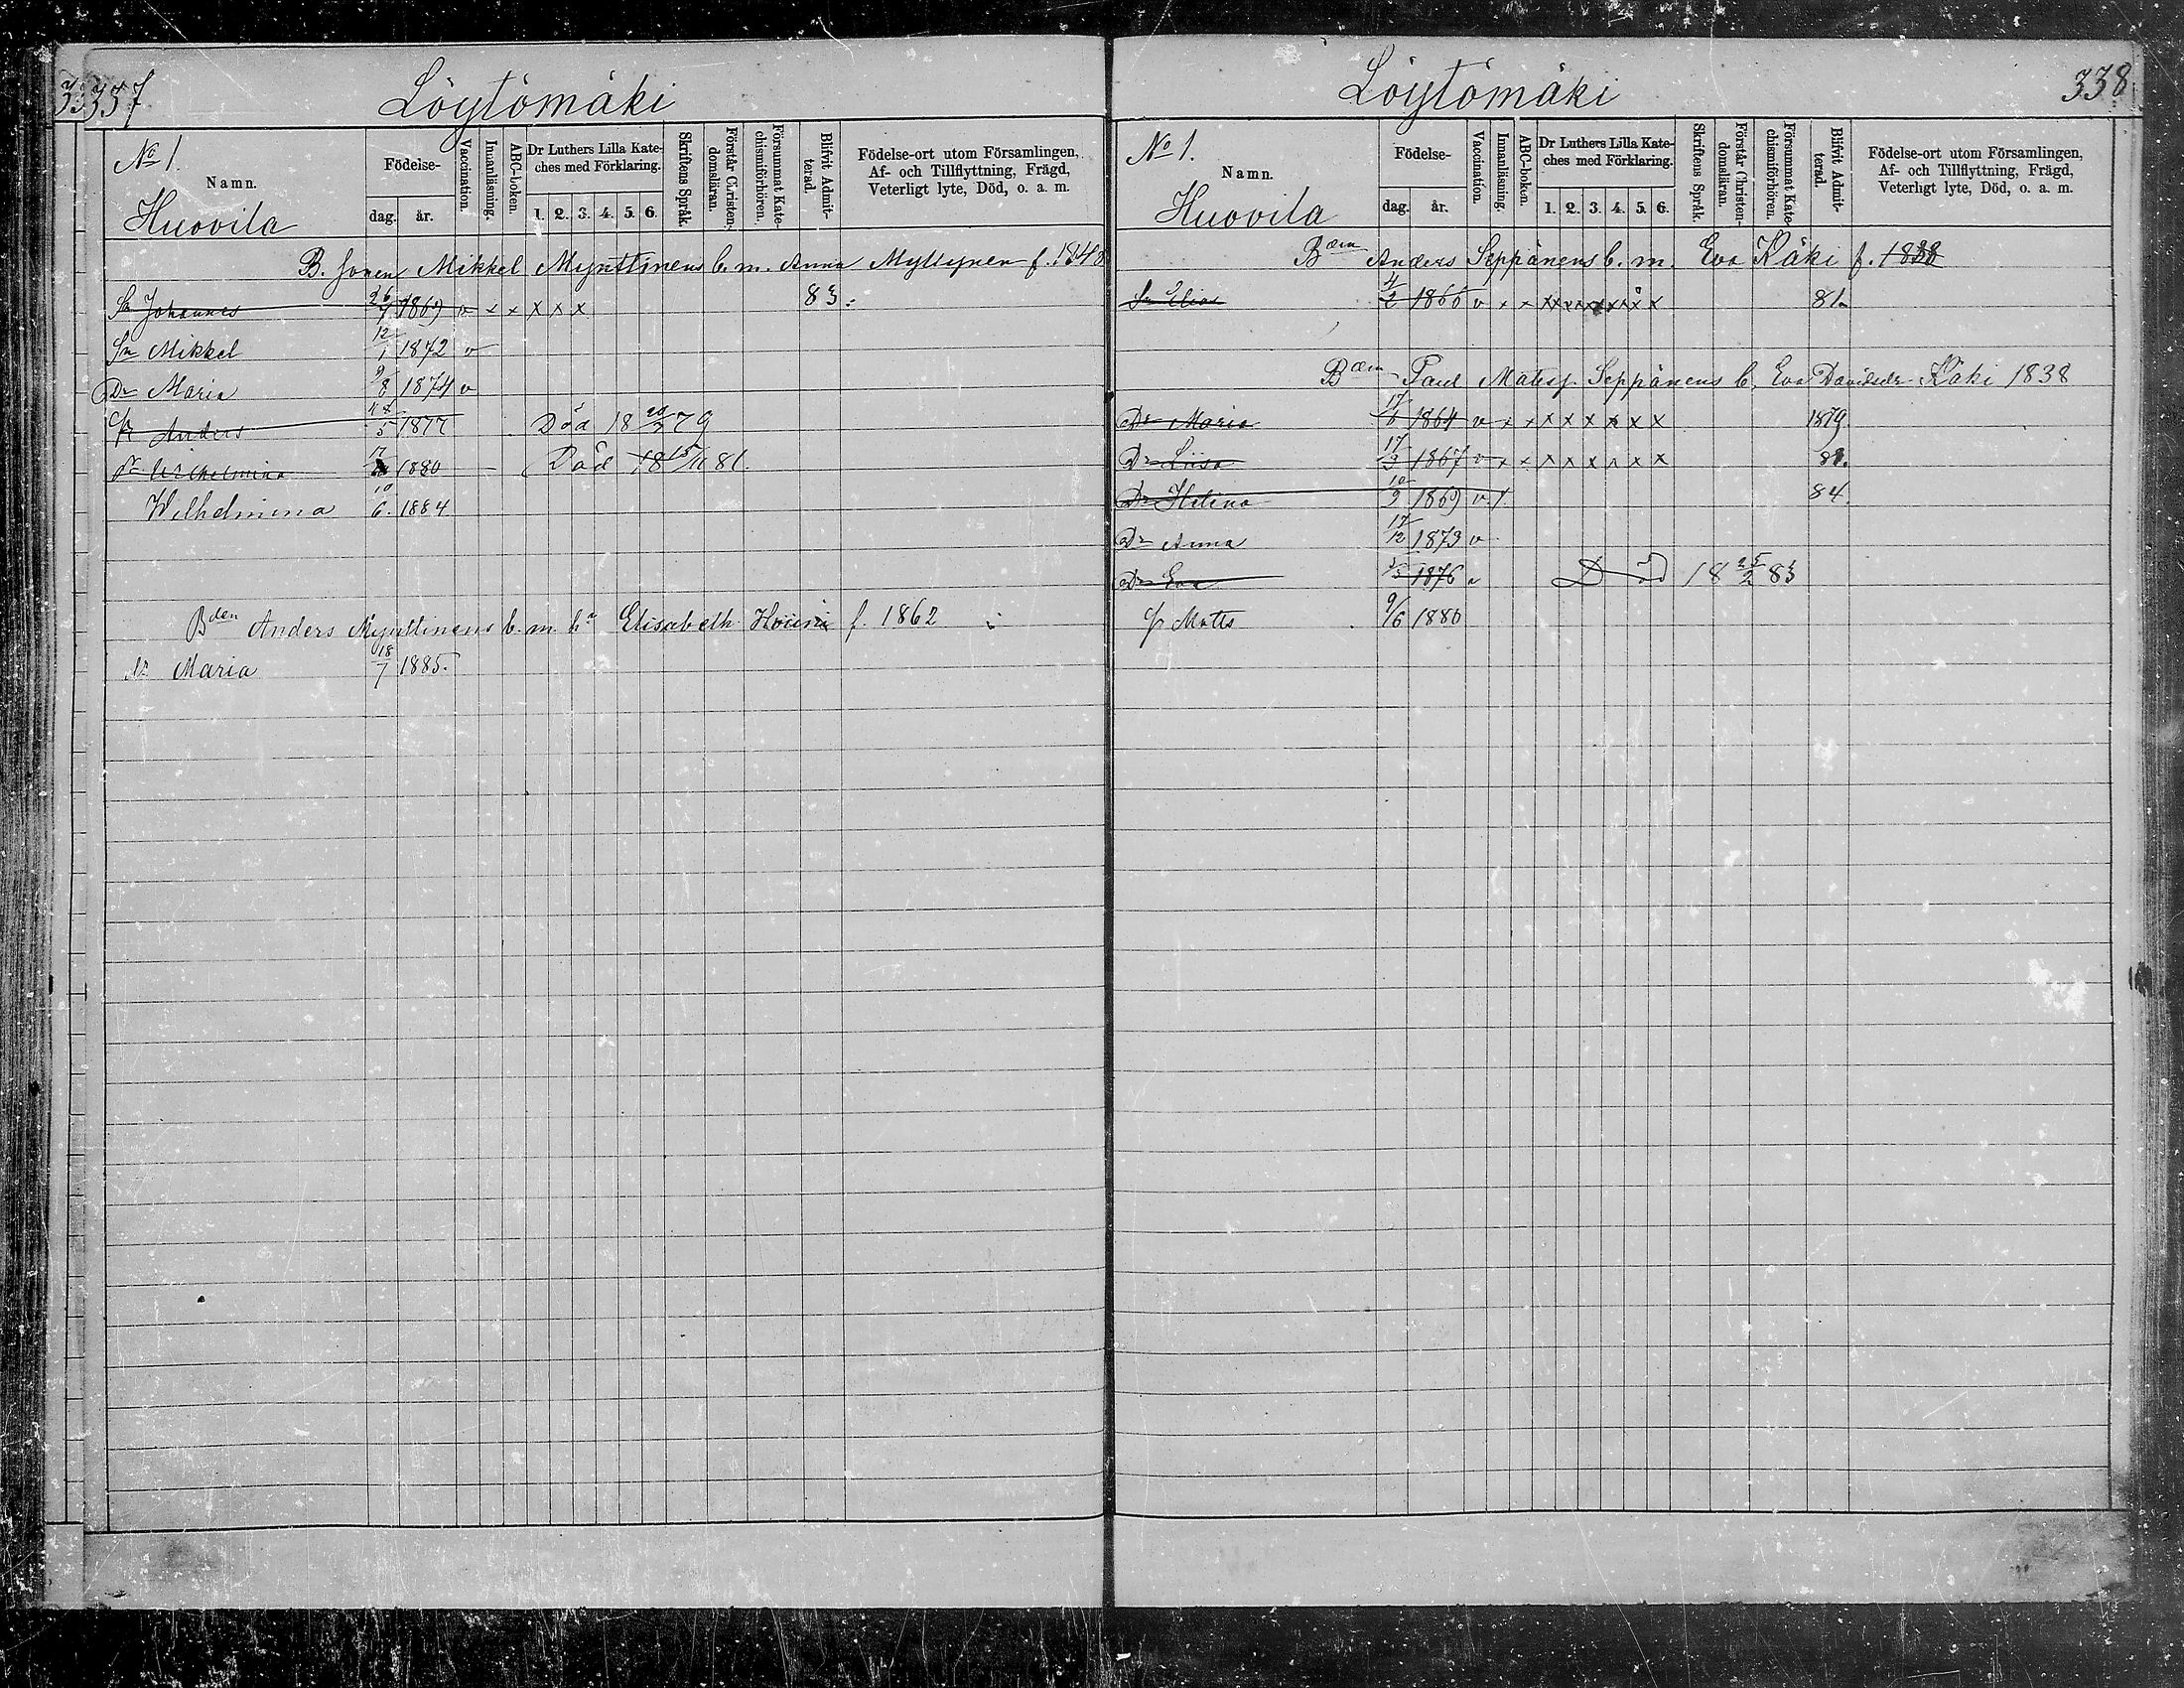 357 Löytömäki
No 1.
Namn.
Huovila
Födelse-
dag. år.
Vaccination.
Innanläsning.
ABC-boken.
Dr Luthers Lilla Kate-
ches med Förklaring.
1. 2. 3. 4. 5. 6.
Skriftens Språk.
Förstår Christen-
domsläran.
Försummat Kate-
chismiförhören.
Blifvit Admit-
terad.
Födelse-ort utom Församlingen,
Af- och Tillflyttning, Frägd,
Veterligt lyte, Död, o. a. m.
B. Mikkel Mynttinens b. m. Anna Myllynen f. 1848
Sn Johannes 26/4 1869 v x x x x x 83
Sn Mikkel 12/1 1872 v
Dr Maria 9/8 1874 v
Anders 5 1877 Död 18 79
Dr Wilhelmina 17 1880 Död 18 15/11 81.
Wilhelmina 10/6. 1884
Bden Anders Mynttinens b. m. hu Elisabeth f. 1862
Dr Maria 18/7 1885.
Löytömäki 338
No 1.
Namn.
Huovila
Födelse-
dag. år.
Vaccination.
Innanläsning.
ABC-boken.
Dr Luthers Lilla Kate-
ches med Förklaring.
1. 2. 3. 4. 5. 6.
Skriftens Språk.
Förstår Christen-
domsläran.
Försummat Kate-
chismiförhören.
Blifvit Admit-
terad.
Födelse-ort utom Församlingen,
Af- och Tillflyttning, Frägd,
Veterligt lyte, Död, o. a. m.
Anders Seppänens b. m. Eva Käki f. 1838
Sn Elias 1866 v x x x x x x x x 81
Paul Matss. Seppänens b. Eva Davidsdr Käki 1838
Dr Maria 17/8 1864 v x x x x x x x x 1879.
Dr Liisa 17/3 1867 v x x x x x x x x 81.
Dr Helena 10/9 1869 v. 84
Dr Anna 17/12 1873 v
Dr Eva 1876 v Död 18 25/2 83
Matts 9/6 1880